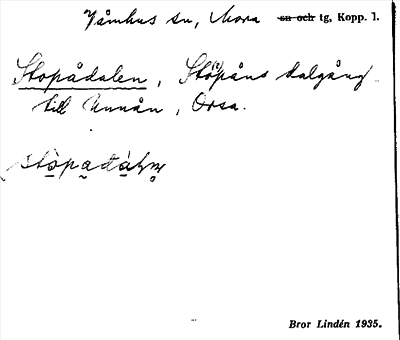 Våmhus sn, Mora ~~sn och~~ tg, Kopp. l.
Stopådalen, Stöpåns dalgång
till Unnån, Orsa.
Bror Lindén 1935.